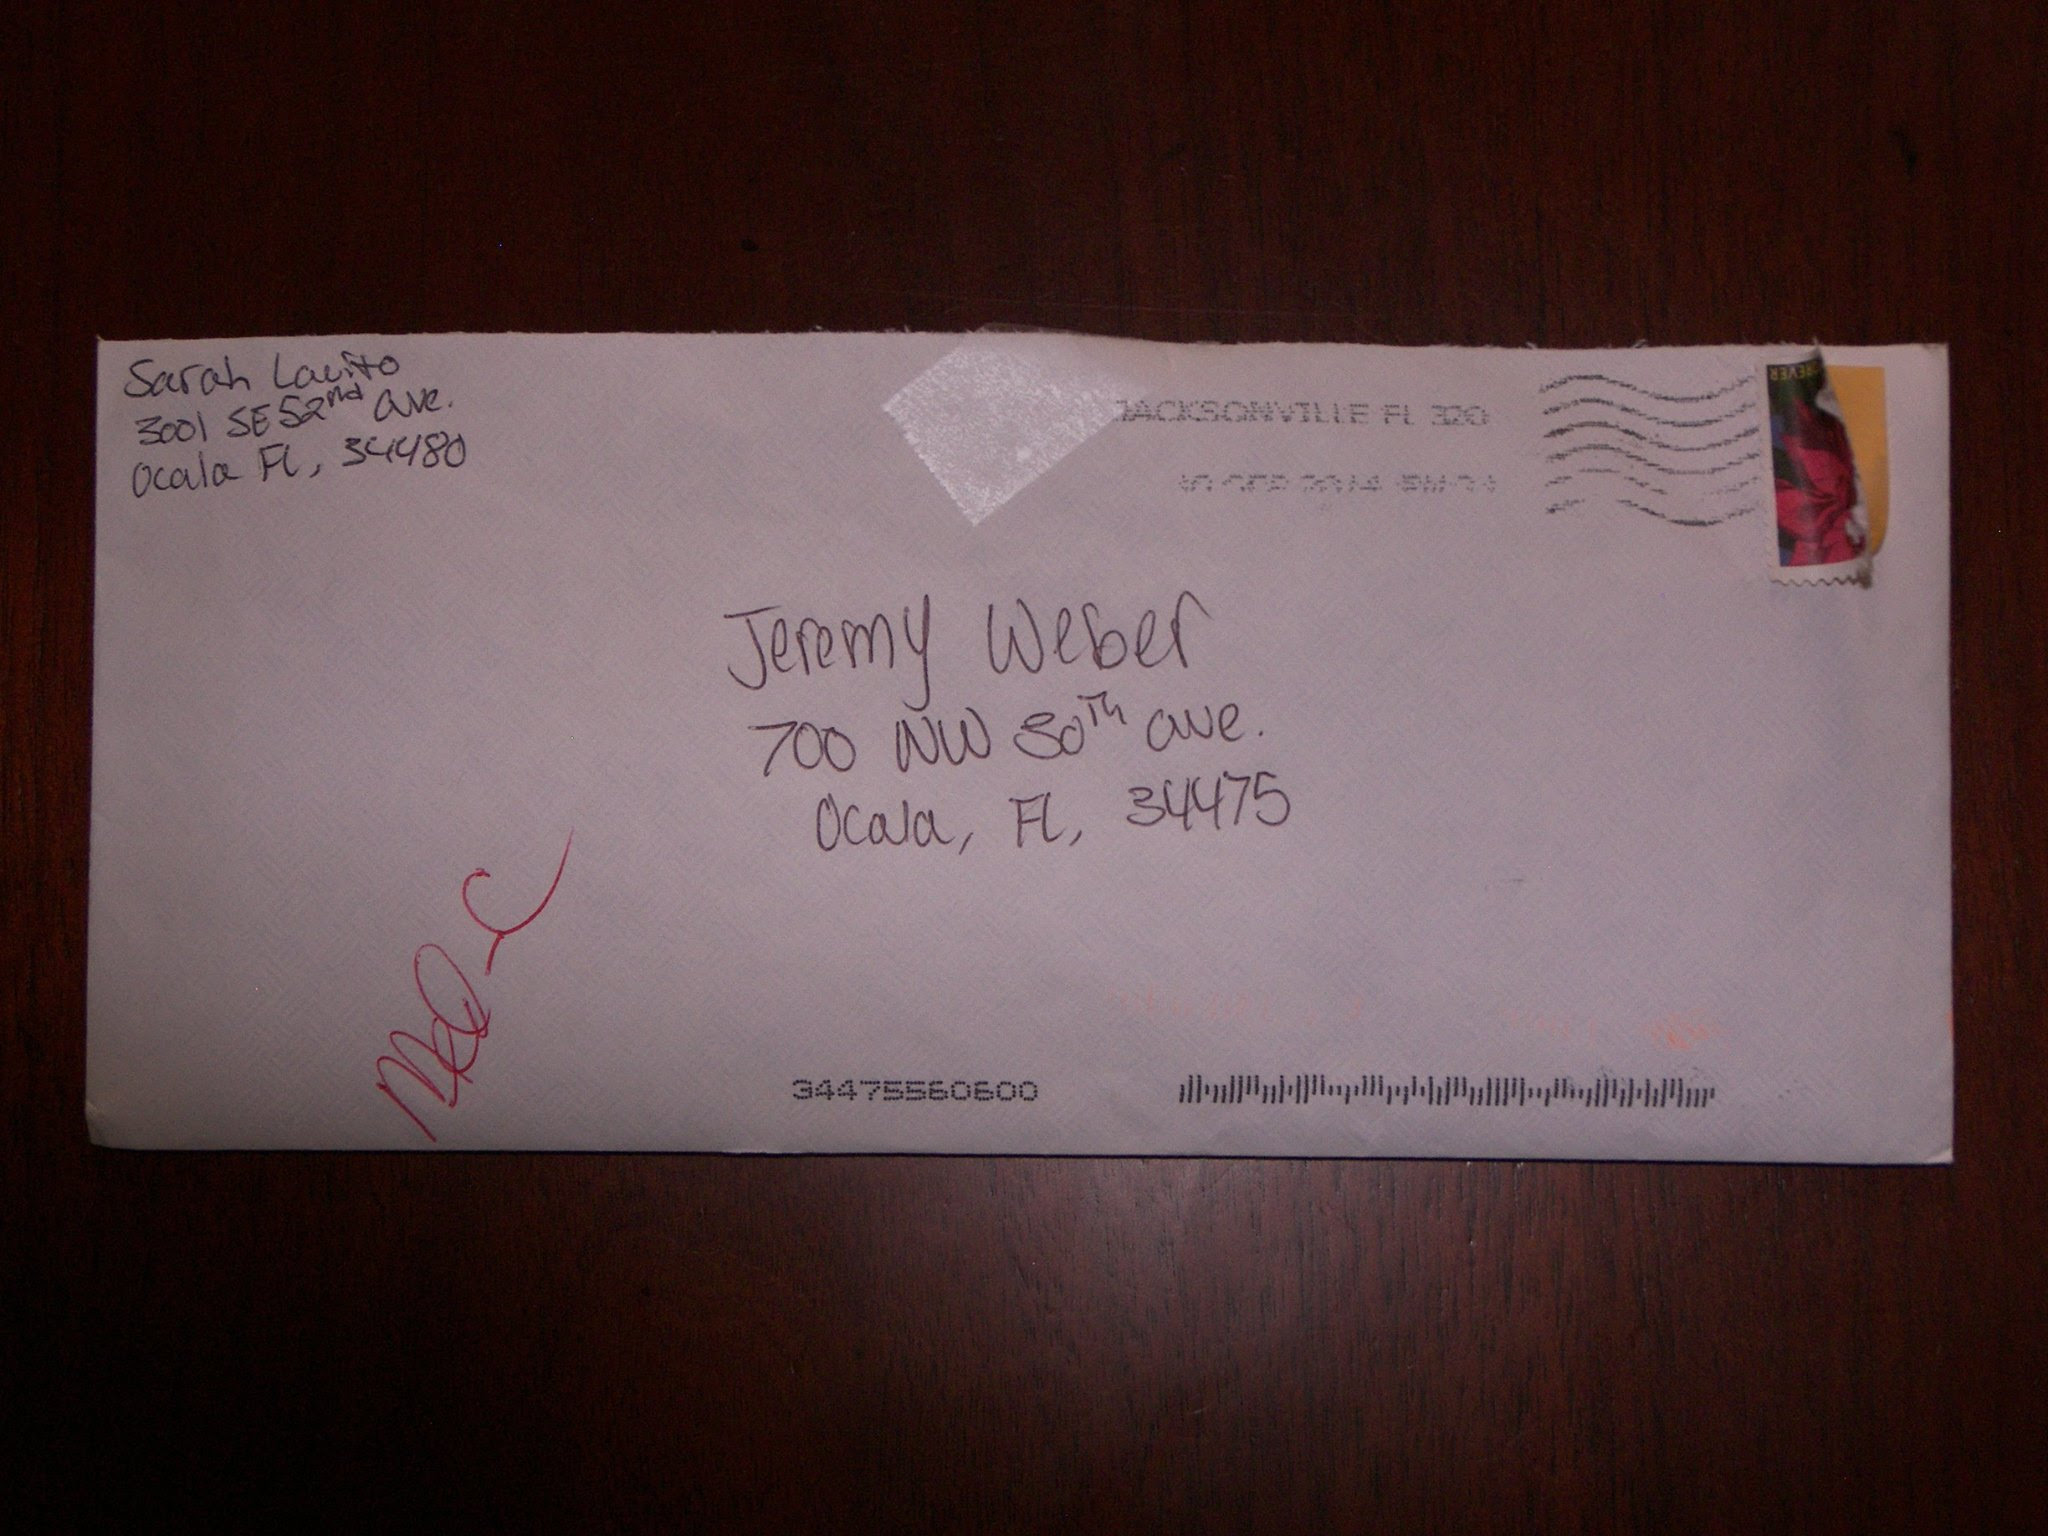 Sarah Lavito
3001 SE 52nd ave.
Ocala FL, 34480
JACKSONVILLE FL 320
FOREVER
Jeremy Weber
700 NW 30th ave.
Ocala, FL, 34475
34475560600